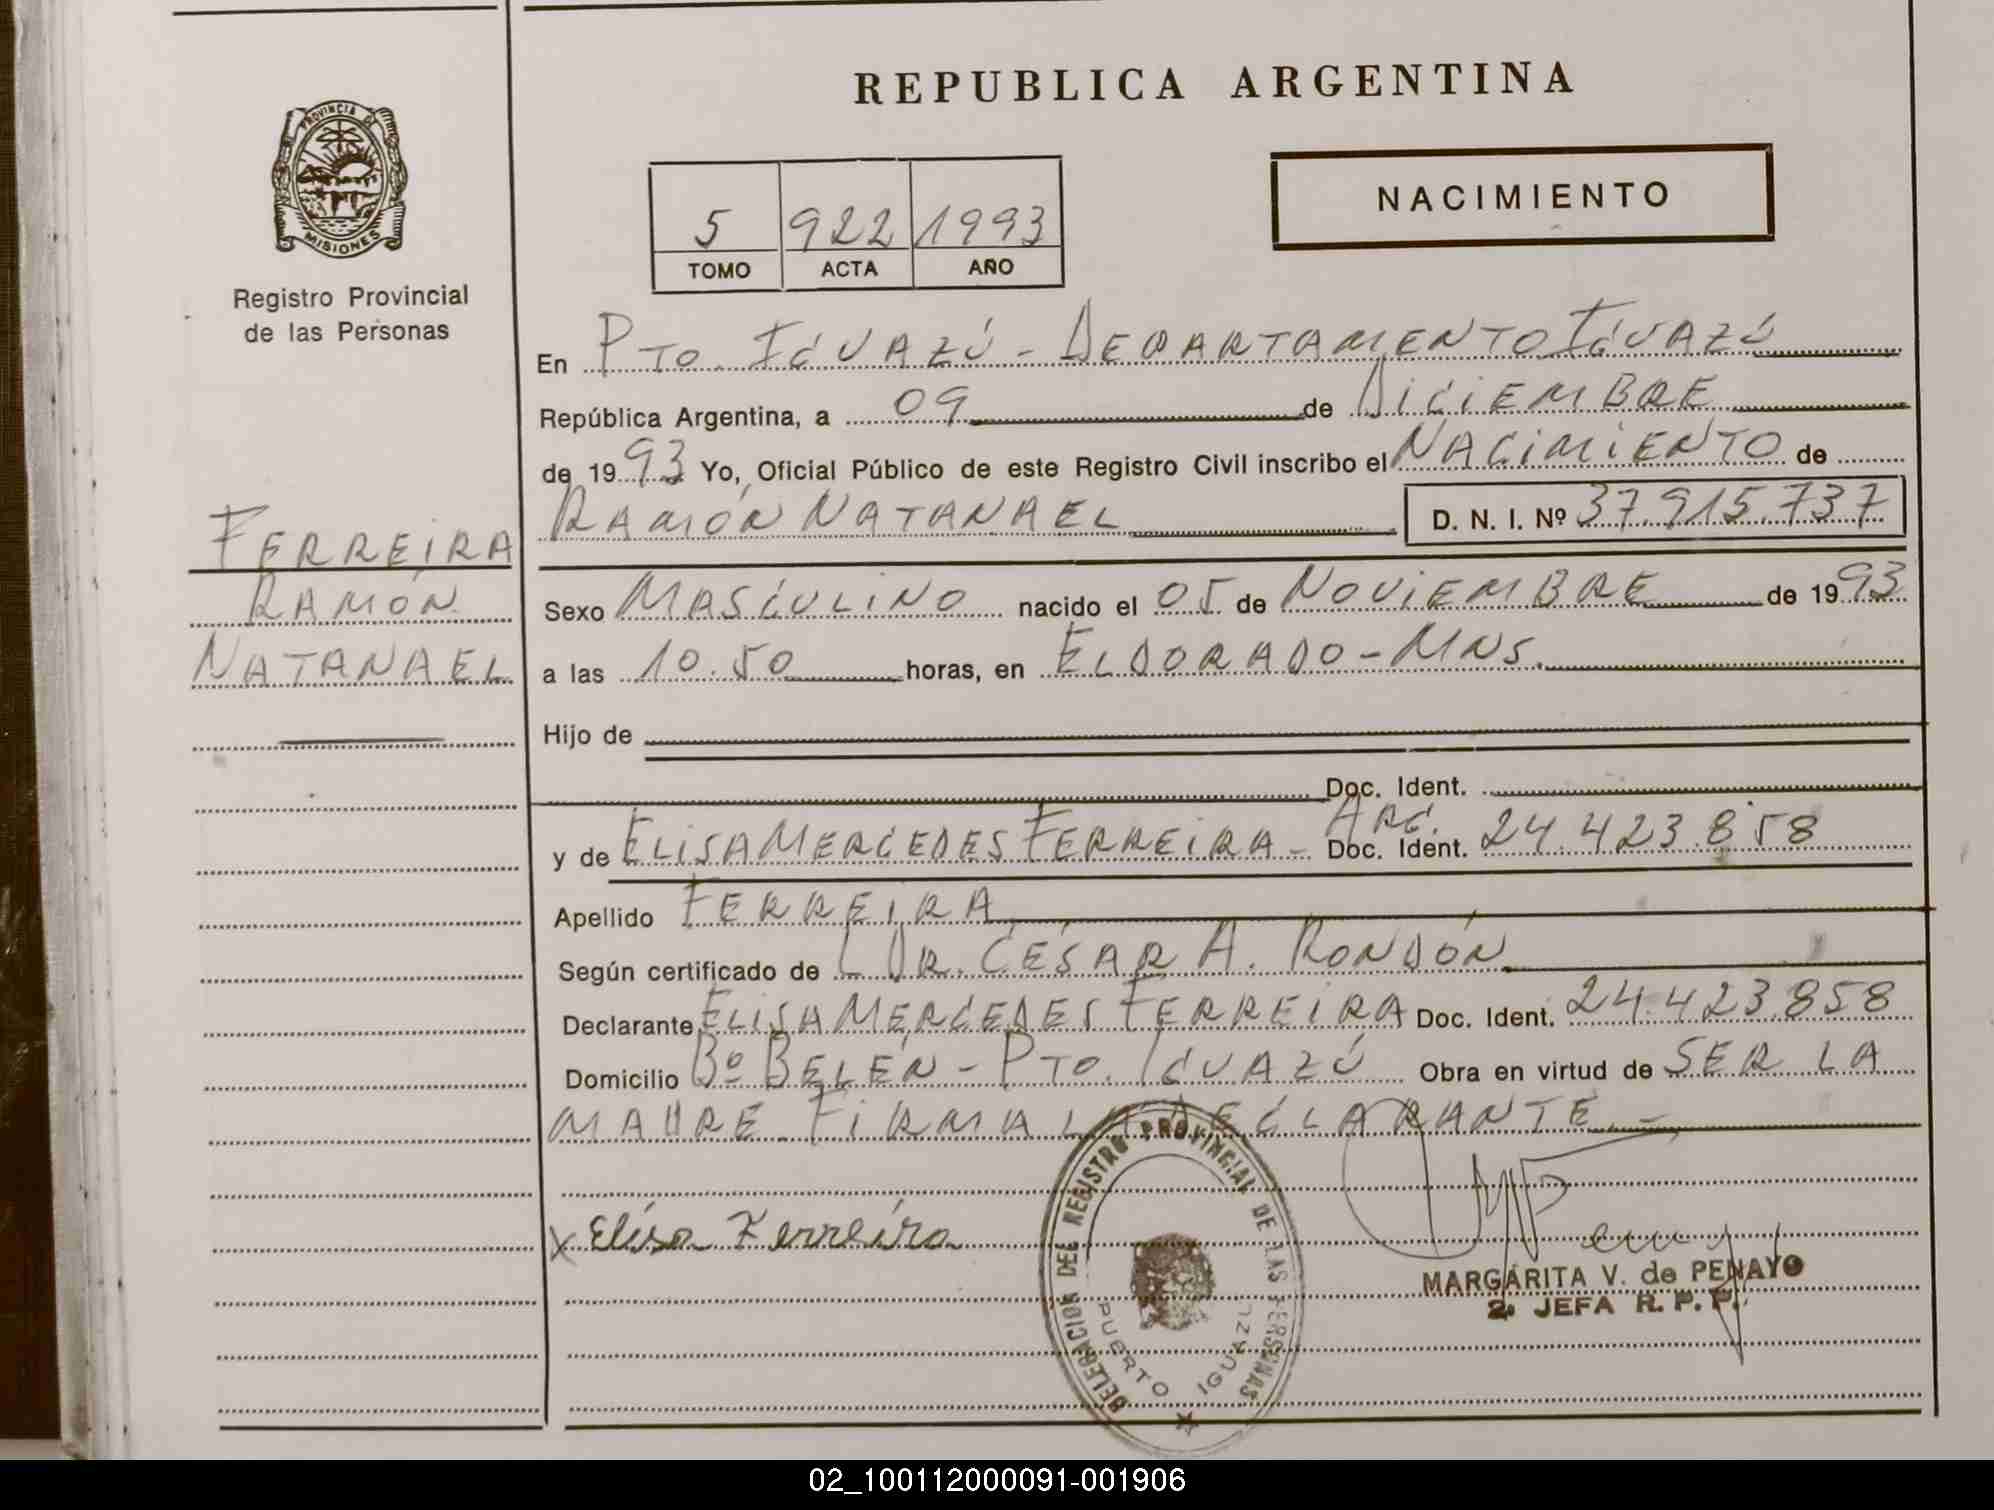 REPUBLICA ARGENTINA
PROVINCIA DE
MISIONES
Registro Provincial
de las Personas
5 922 1993
TOMO ACTA AÑO
NACIMIENTO
FERREIRA
RAMÓN
NATANAEL
En PTO. IGUAZÚ - DEPARTAMENTO IGUAZÚ
República Argentina, a 09 de DICIEMBRE
de 1993 Yo, Oficial Público de este Registro Civil inscribo el NACIMIENTO de
RAMÓN NATANAEL D. N. I. Nº 37.915.737
Sexo MASCULINO nacido el 05 de NOVIEMBRE de 1993
a las 10.50 horas, en ELDORADO - MNS.
Hijo de
Doc. Ident.
y de ELISA MERCEDES FERREIRA - ARG. Doc. Ident. 24.423.858
Apellido FERREIRA
Según certificado de DR. CÉSAR A. RONDÓN
Declarante ELISA MERCEDES FERREIRA Doc. Ident. 24.423.858
Domicilio Bº BELÉN - PTO. IGUAZÚ Obra en virtud de SER LA
MADRE. FIRMA LA DECLARANTE. -
x Elisa Ferreira
DELEGACION DEL REGISTRO PROVINCIAL DE LAS PERSONAS
PUERTO IGUAZU
MARGARITA V. de PENAYO
2ª JEFA R. P. P.
02_100112000091-001906